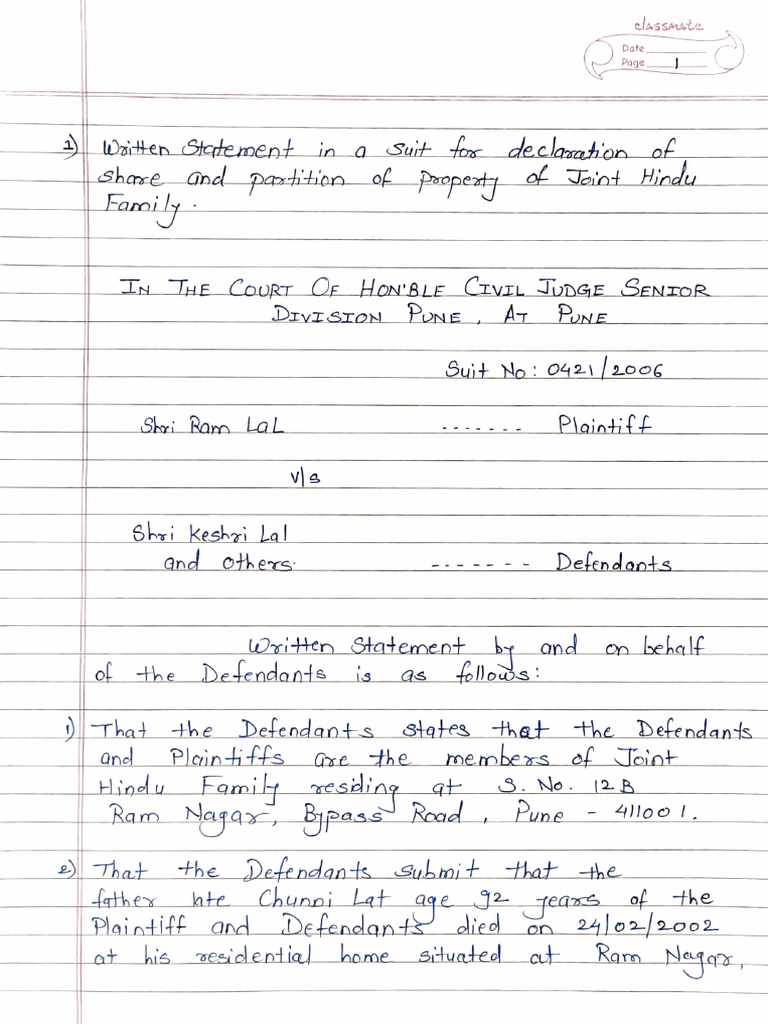 classmate
Date
Page 1
1) Written Statement in a suit for declaration of
share and partition of property of Joint Hindu
Family.
IN THE COURT OF HON'BLE CIVIL JUDGE SENIOR
DIVISION PUNE, AT PUNE
Suit No: 0421/2006
Shri Ram Lal ....... Plaintiff
v/s
Shri Keshri Lal
and others. ------- Defendants
Written Statement by and on behalf
of the Defendants is as follows:
1) That the Defendants states that the Defendants
and Plaintiffs are the members of Joint
Hindu Family residing at S. No. 12B
Ram Nagar, Bypass Road, Pune - 411001.
2) That the Defendants submit that the
father late Chunni Lat age 92 years of the
Plaintiff and Defendants died on 24/02/2002
at his residential home situated at Ram Nagar,